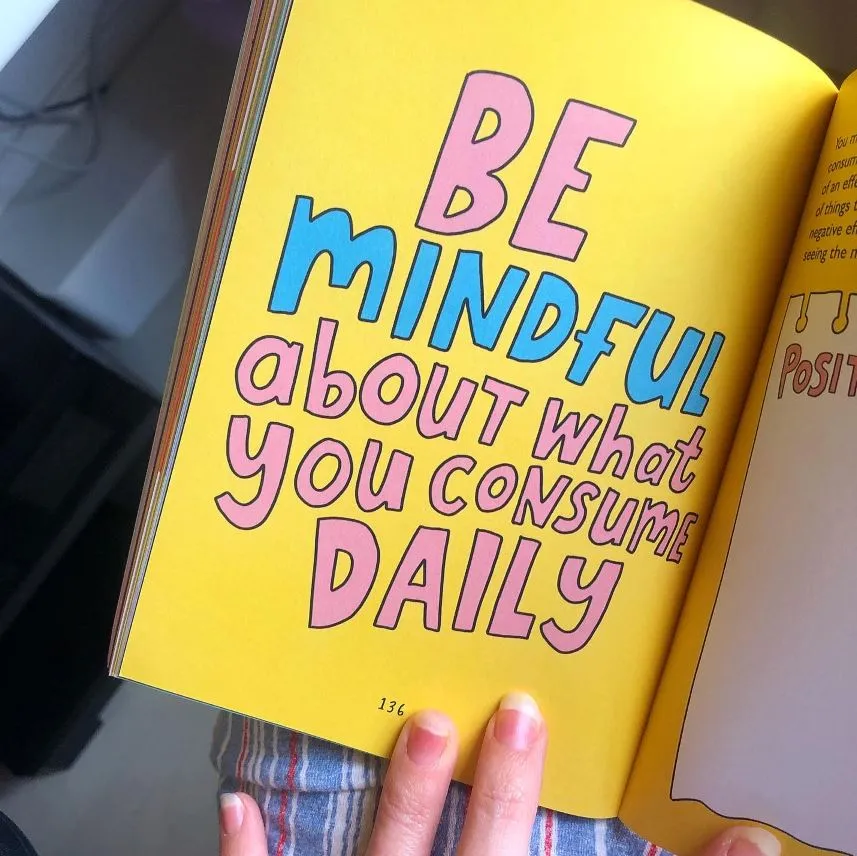 BE
MINDFUL
about what
you consume
DAILY
136
You m
consum
of an effe
of things t
negative eff
seeing the n
POSIT